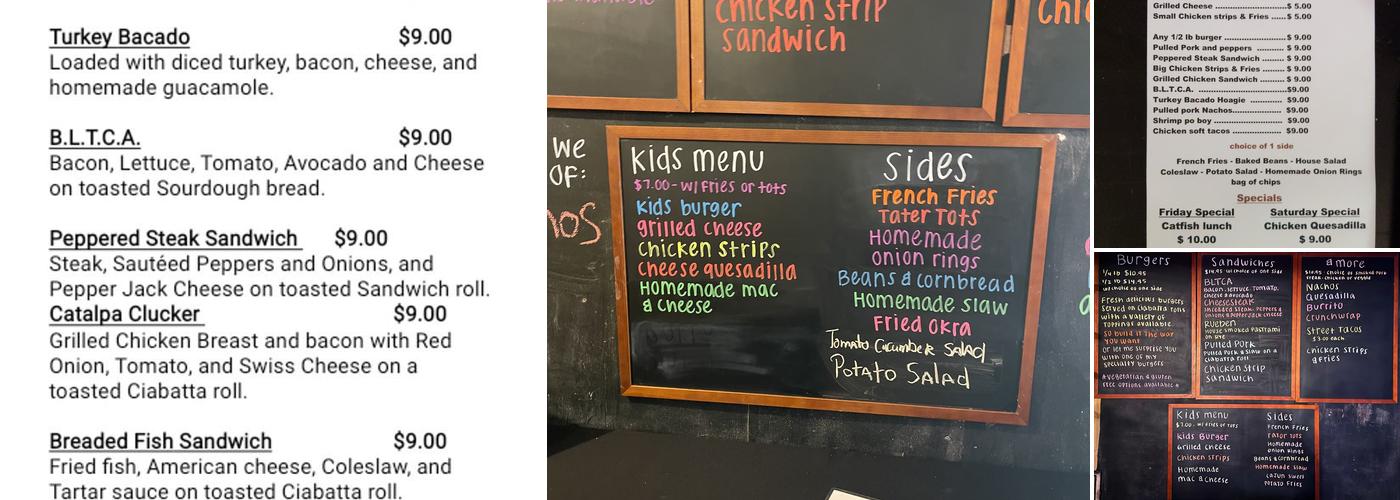 Turkey Bacado $9.00
Loaded with diced turkey, bacon, cheese, and
homemade guacamole.
B.L.T.C.A. $9.00
Bacon, Lettuce, Tomato, Avocado and Cheese
on toasted Sourdough bread.
Peppered Steak Sandwich $9.00
Steak, Sautéed Peppers and Onions, and
Pepper Jack Cheese on toasted Sandwich roll.
Catalpa Clucker $9.00
Grilled Chicken Breast and bacon with Red
Onion, Tomato, and Swiss Cheese on a
toasted Ciabatta roll.
Breaded Fish Sandwich $9.00
Fried fish, American cheese, Coleslaw, and
Tartar sauce on toasted Ciabatta roll.
chicken strip
sandwich
chi
we
OF:
kids menu
$7.00 - w/ Fries or tots
kids burger
grilled cheese
chicken strips
cheese quesadilla
Homemade mac
& cheese
Sides
French Fries
Tater Tots
Homemade
onion rings
Beans & cornbread
Homemade slaw
Fried okra
Tomato Cucumber Salad
Potato Salad
Grilled Cheese ................$ 5.00
Small Chicken strips & Fries ......$ 5.00
Any 1/2 lb burger ................$ 9.00
Pulled Pork and peppers ..........$ 9.00
Peppered Steak Sandwich .........$ 9.00
Big Chicken Strips & Fries ........$ 9.00
Grilled Chicken Sandwich .......$ 9.00
B.L.T.C.A. ..............................$9.00
Turkey Bacado Hoagie ............ $9.00
Pulled pork Nachos.................. $9.00
Shrimp po boy ....................... $9.00
Chicken soft tacos .................. $9.00
choice of 1 side
French Fries - Baked Beans - House Salad
Coleslaw - Potato Salad - Homemade Onion Rings
bag of chips
Specials
Friday Special
Catfish lunch
$ 10.00
Saturday Special
Chicken Quesadilla
$ 9.00
Burgers
1/4 lb $10.95
1/2 lb $14.95
w/ choice of one side
Fresh delicious burgers
served on ciabatta rolls
with a variety of
toppings available.
So build it the way
you want
or let me surprise you
with one of my
specialty burgers
*vegetarian & gluten
free options available*
Sandwiches
$14.95 w/ choice of one side
BLTCA
Bacon, lettuce, tomato,
cheese & avocado
Cheesesteak
shredded steak, peppers &
onions & pepper jack cheese
Rueben
House smoked pastrami
on rye
Pulled Pork
Pulled pork & slaw on a
ciabatta roll
Chicken strip
sandwich
& more
Nachos
Quesadilla
Burrito
Crunchwrap
Street Tacos
$3.00 each
Chicken strips
& fries
Kids menu
$7.00 - w/ fries or tots
Kids Burger
Grilled cheese
Chicken strips
Homemade
mac & cheese
Sides
French Fries
Tator tots
Homemade
onion rings
Beans & cornbread
Homemade slaw
Cajun sweet
potato fries